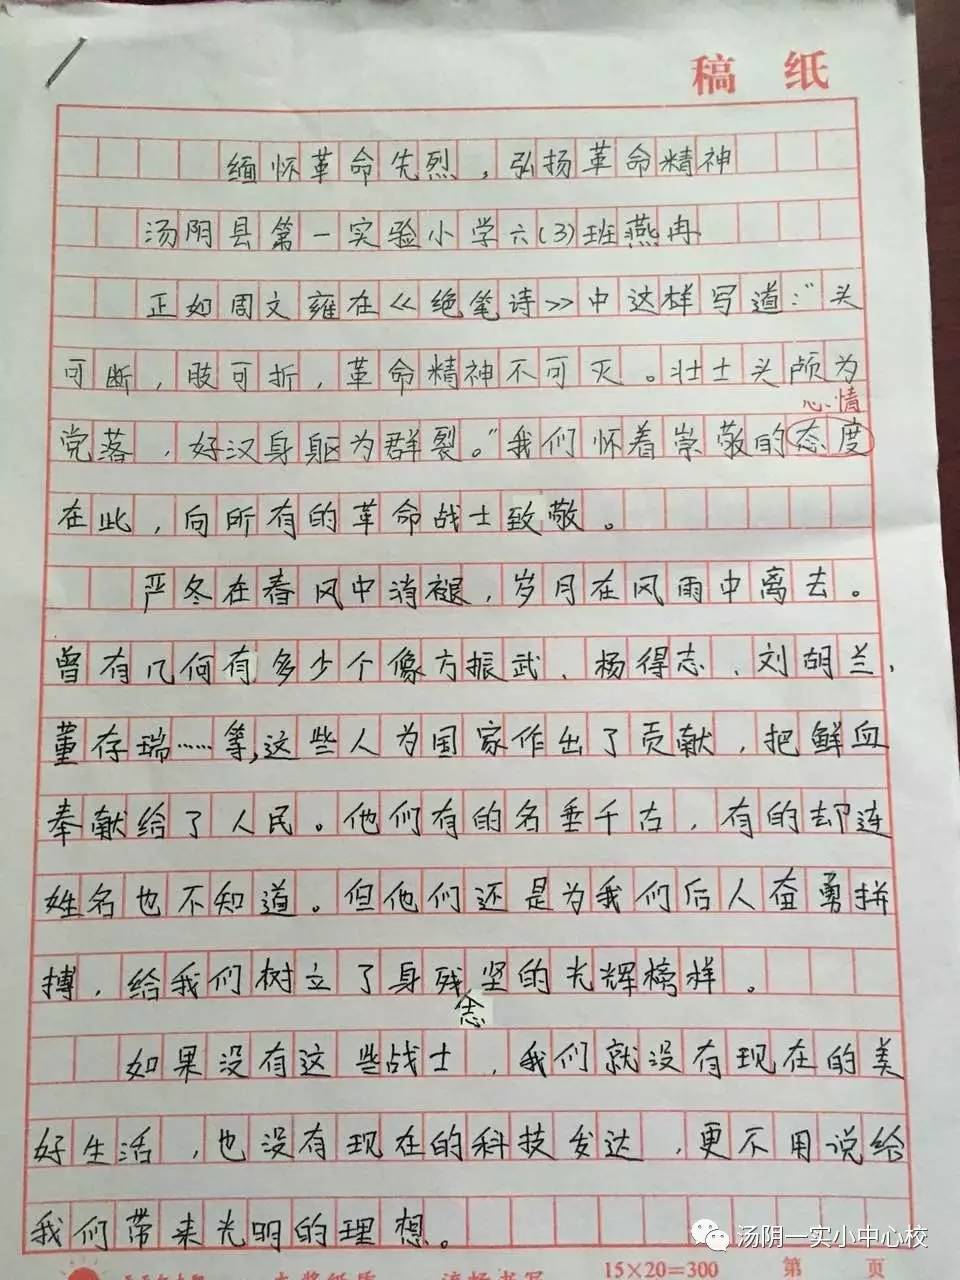 稿 纸
缅怀革命先烈，弘扬革命精神
汤阴县第一实验小学六(3)班燕冉
正如周文雍在《绝笔诗》中这样写道："头
可断，肢可折，革命精神不可灭。壮士头颅为
心情
党落，好汉身躯为群裂。"我们怀着崇敬的态度
在此，向所有的革命战士致敬。
严冬在春风中消褪，岁月在风雨中离去。
曾有几何有多少个像方振武、杨得志、刘胡兰、
董存瑞……等,这些人为国家作出了贡献，把鲜血
奉献给了人民。他们有的名垂千古，有的却连
姓名也不知道。但他们还是为我们后人奋勇拼
搏，给我们树立了身残坚的光辉榜样。
志
如果没有这些战士，我们就没有现在的美
好生活，也没有现在的科技发达，更不用说给
我们带来光明的理想。
汤阴一实小中心校
15×20=300 第 页